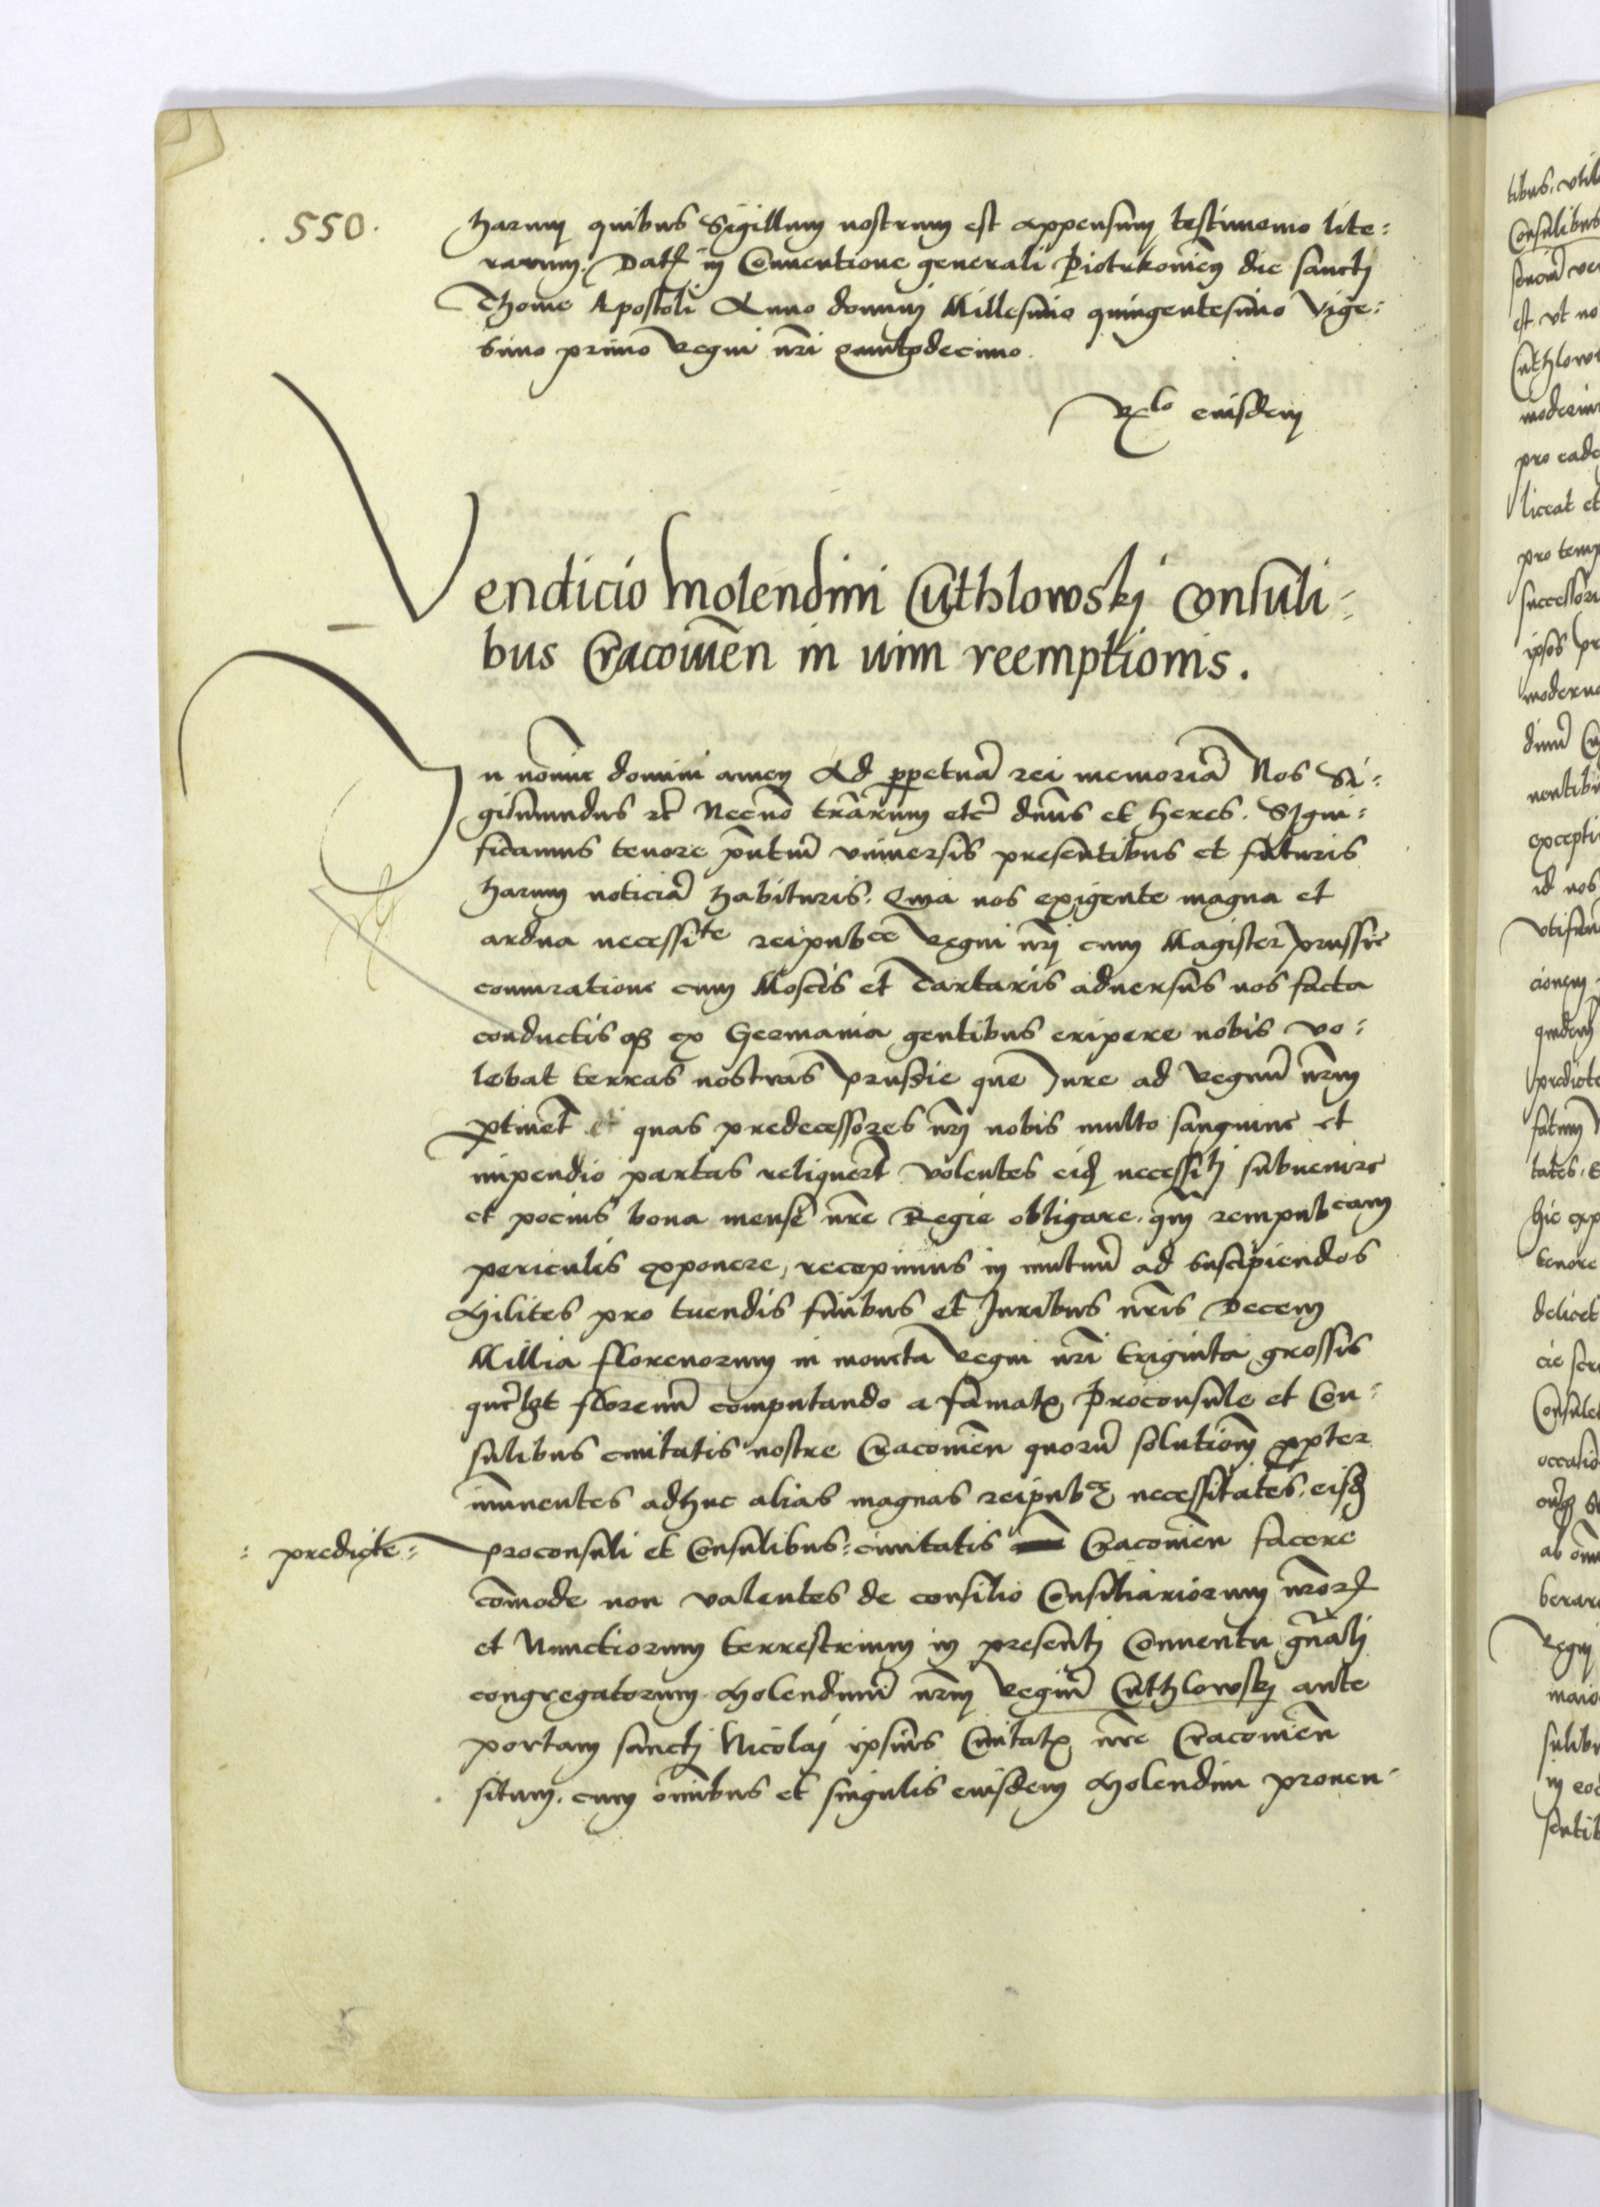 . 550 .
harum quibus Sigillum nostrum est appensum testimonio lite:
rarum. Dat in Conventione generali Piotrkovien die sancti
Thome Apostoli Anno domini Millesimo quingentesimo Vige:
simo primo Regni nri quintodecimo.
Rlo eiusdem
Vendicio molendini Cuthlowskj Consuli:
bus Cracovien in vim reemptionis.
In nomine domini amen Ad ppetuā rei memoriā Nos Si:
gismundus etc Necno trarum etc dnus et heres. Signi:
ficamus tenore pntiū vniversis presentibus et futuris
harum noticiā habituris. Quia nos exigente magna et
ardua necessite reipubce Regni nrj cum Magister prussie
coniuratione cum Moscis et Tartaris adversus nos facta
conductis qz ex Germania gentibus eripere nobis vo:
lebat terras nostras prussie que Jure ad Regnū nrm
ptinet et quas predecessores nrj nobis multo sanguine et
impendio partas reliquert volentes eid necessitj subvenire
et pocius bona mense nre Regie obligare, qm rempubcam
periculis exponere, recepimus in mutuū ad suscipiendos
Milites pro tuendis finibus et Juribus nris Decem
Millia florenorum in moneta Regni nri triginta grossis
querlzt florenū computando a famatis Proconsule et Con:
sulibus civitatis nostre Cracovien quorū solutionē ppter
iminentes adhuc alias magnas reipubce necessitates, eisd
: predicte : proconsuli et Consulibus : civitatis Cracovien facere
cōmode non valentes de consilio Consiliariorum nror
et Nunctiorum terrestrium in presentj Conventu gnalj
congregatorum Molendinū nrm Regiū Cuthlowskj ante
portam sanctj Nicolaj ipsius Civitatis nre Cracovien
situm, cum omnibus et singulis eiusdem Molendini proven:
tibus,
Consulibus
est, vt no
Cuthlows
pro eade
liceat et
pro temp
successori
ipsos pr
moderno
excepti
id nos
predicte
hic exp
tenore
Consules
occasio
berare
Regni
maio
sulibu
in eod
sentib